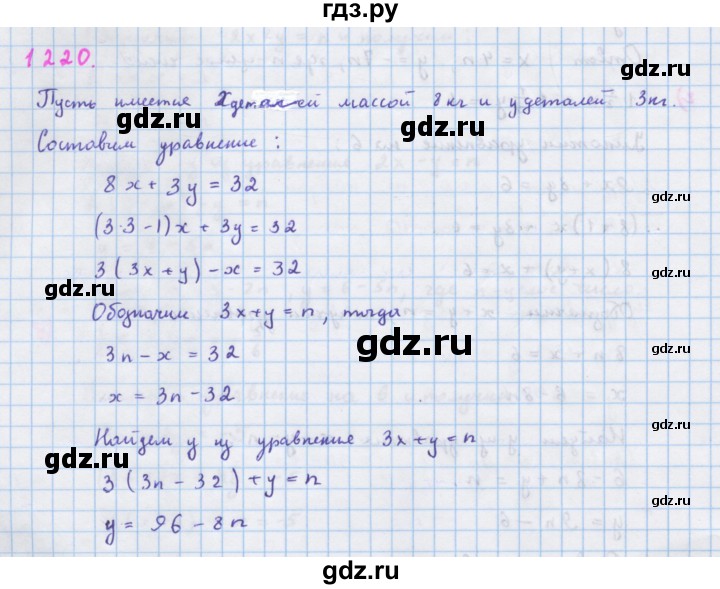 гдз.ру
1220.
Пусть имеется x деталей массой 8кг и y деталей 3кг.
gdz.ru
gdz.ru
gdz.ru
Составим уравнение:
8x + 3y = 32
gdz.ru
(3·3 - 1)x + 3y = 32
3(3x + y) - x = 32
gdz.ru
Обозначим 3x + y = n, тогда
gdz.ru
gdz.ru
3n - x = 32
x = 3n - 32
Найдем y из уравнение 3x + y = n
gdz.ru
3(3n - 32) + y = n
gdz.ru
y = 96 - 8n
gdz.ru
gdz.ru